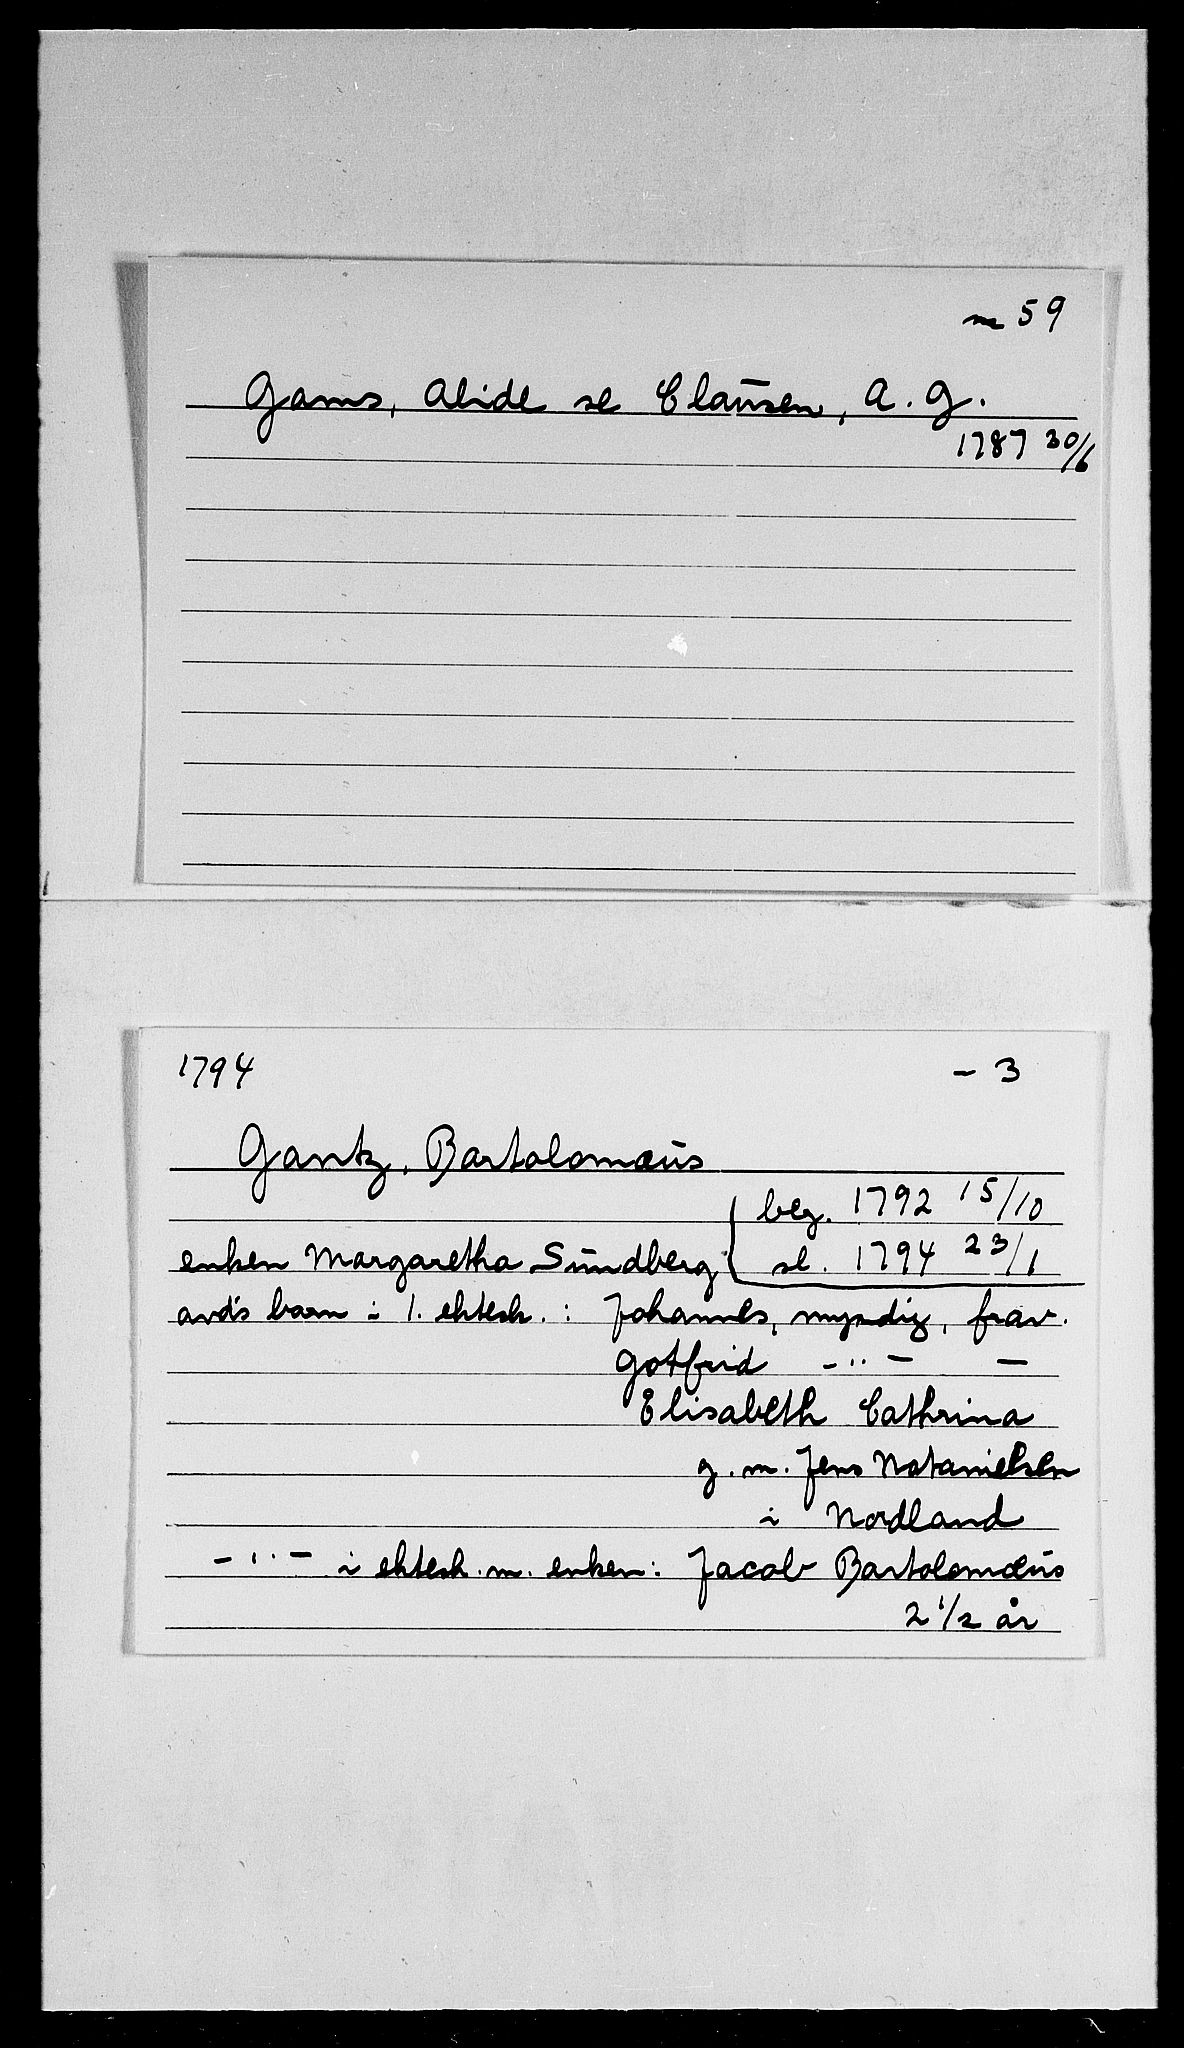 m 59
Gams, Alide se Clausen, A. G.
1787 30/6
1794 - 3
Gantz, Bartolomæus
beg. 1792 15/10
enken Margaretha Sundberg sl. 1794 23/1
avd's barn i 1. ektesk. : Johannes, myndig, frav.
Gotfrid -"- -
Elisabeth Cathrina
g. m. Jens Natanielsen
i Nordland
-"- i ektesk. m. enken: Jacob Bartolomæus
2 1/2 år